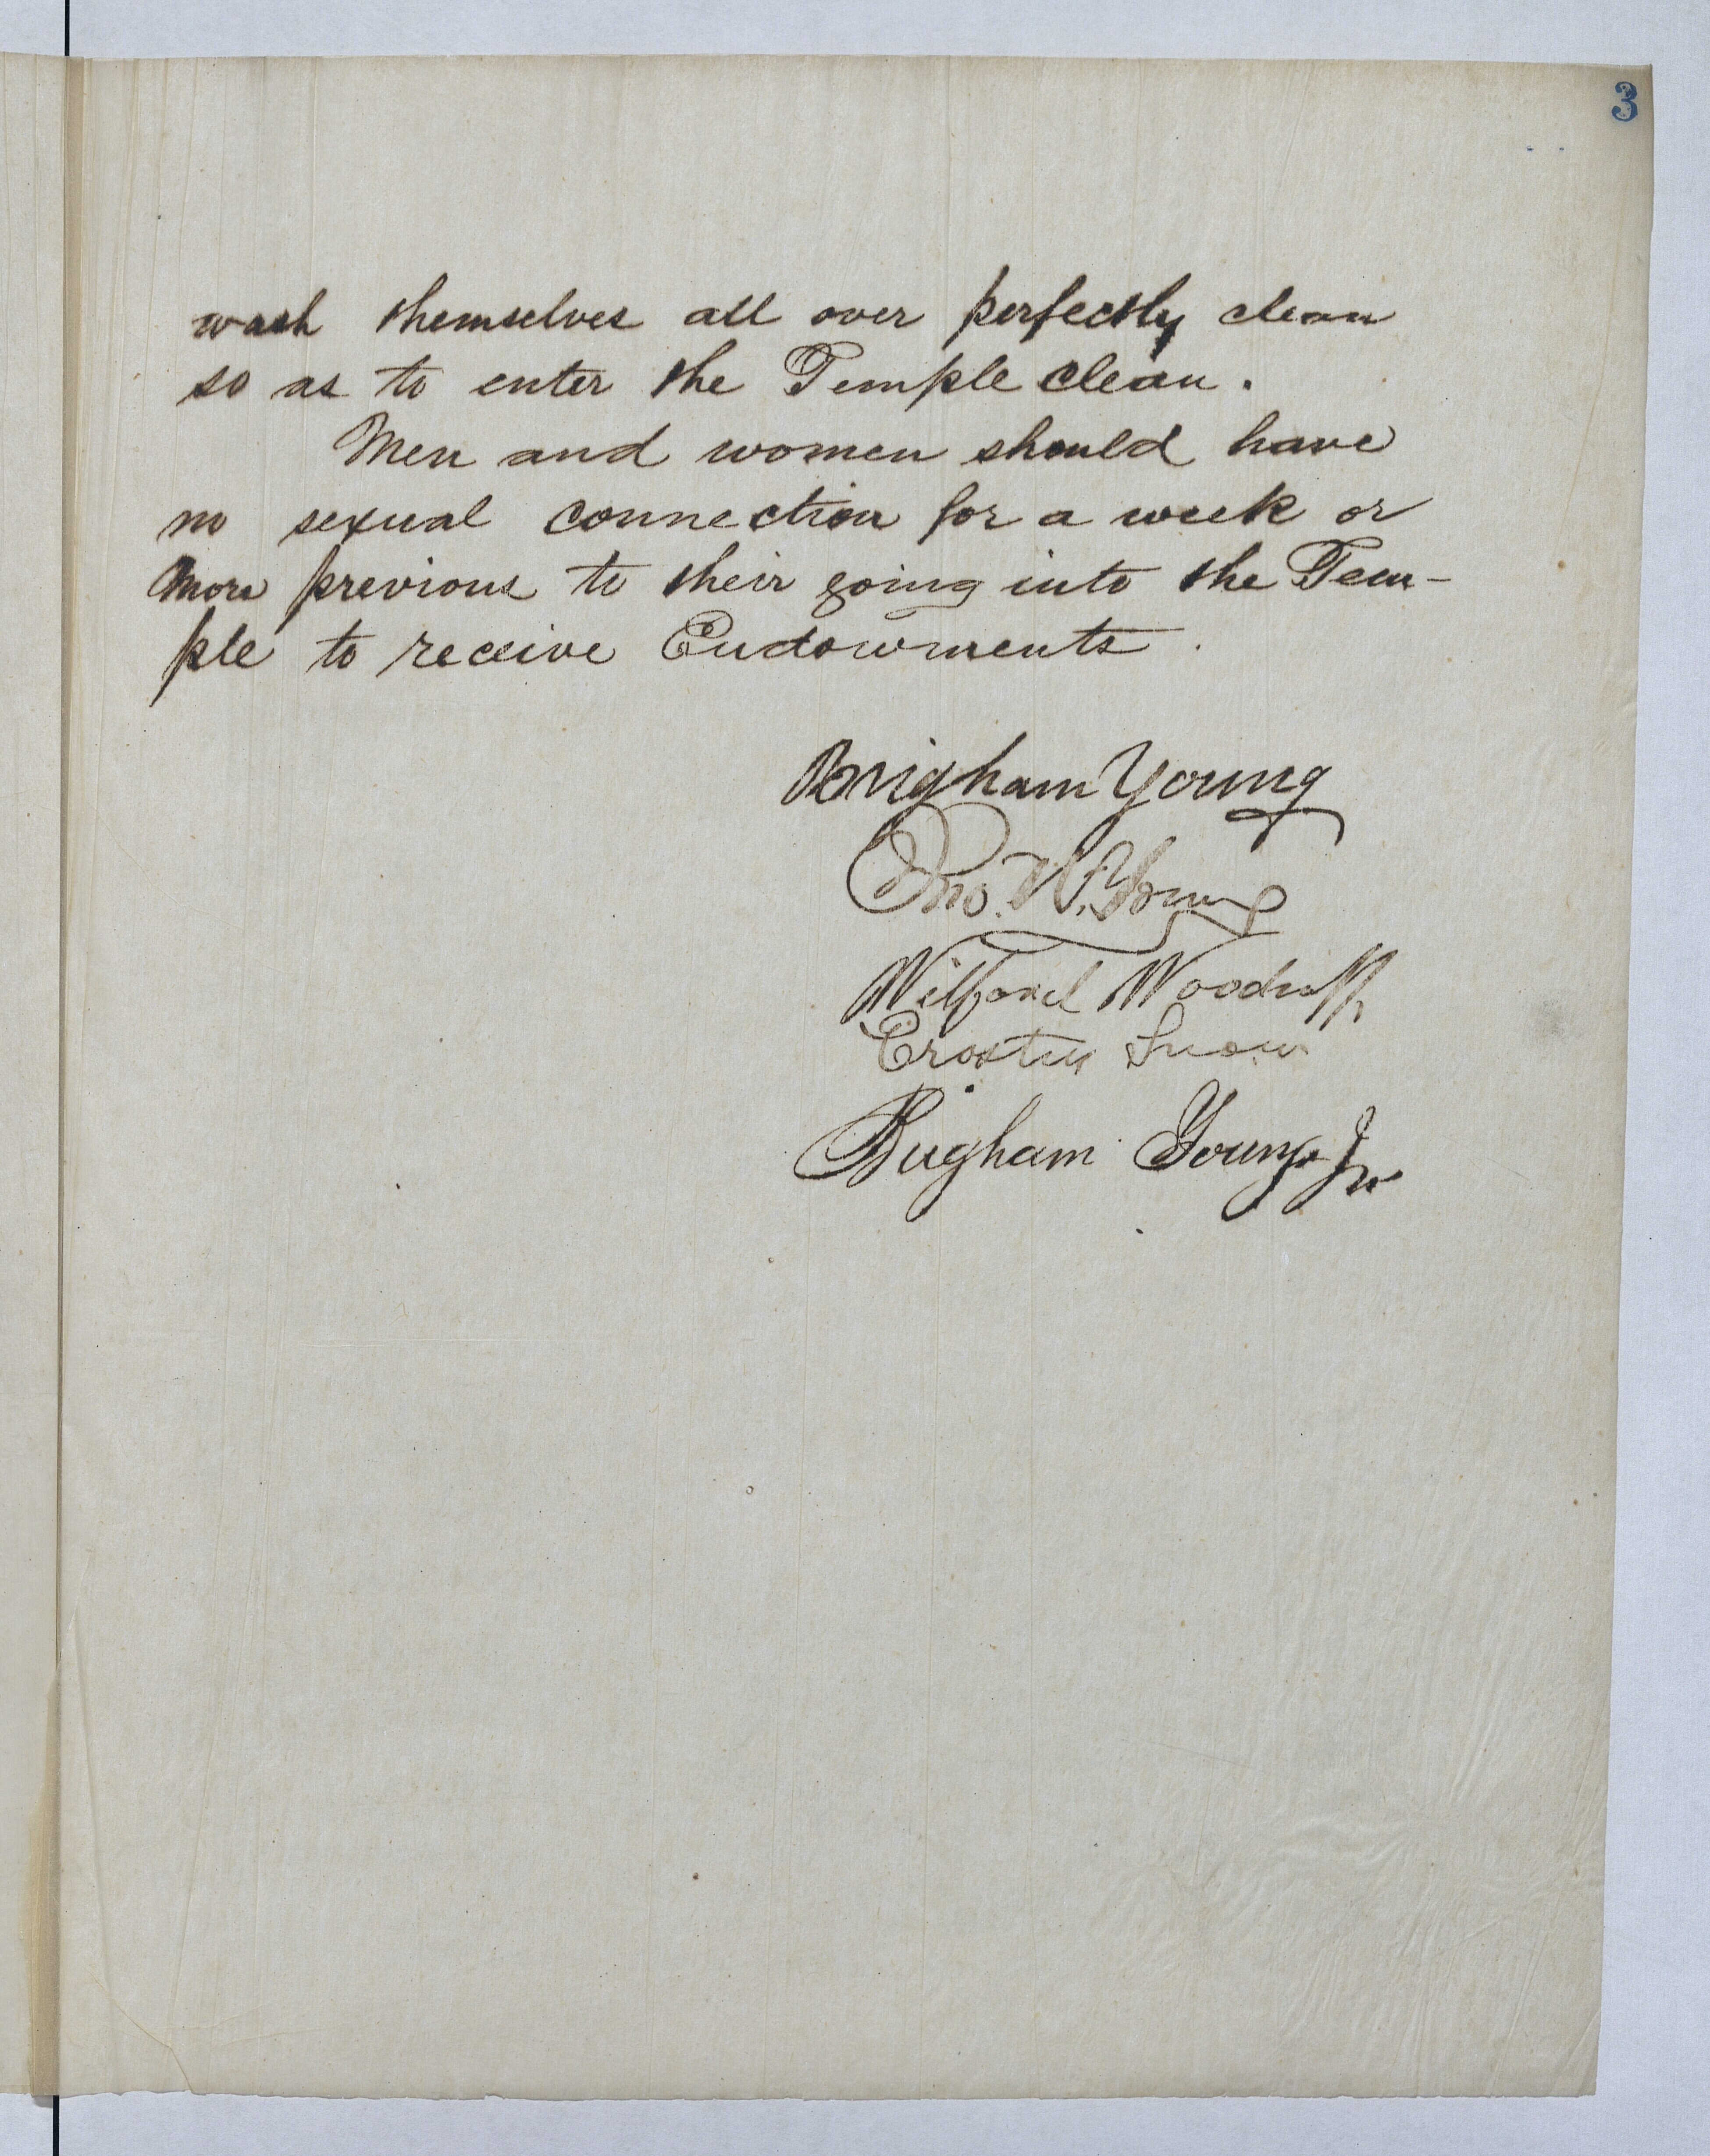 3
wash themselves all over perfectly clean
so as to enter the Temple clean.
Men and women should have
no sexual connection for a week or
more previous to their going into the Tem-
ple to receive Endowments.
Brigham Young
Jno. W. Young
Wilford Woodruff
Erastus Snow
Brigham Young Jr